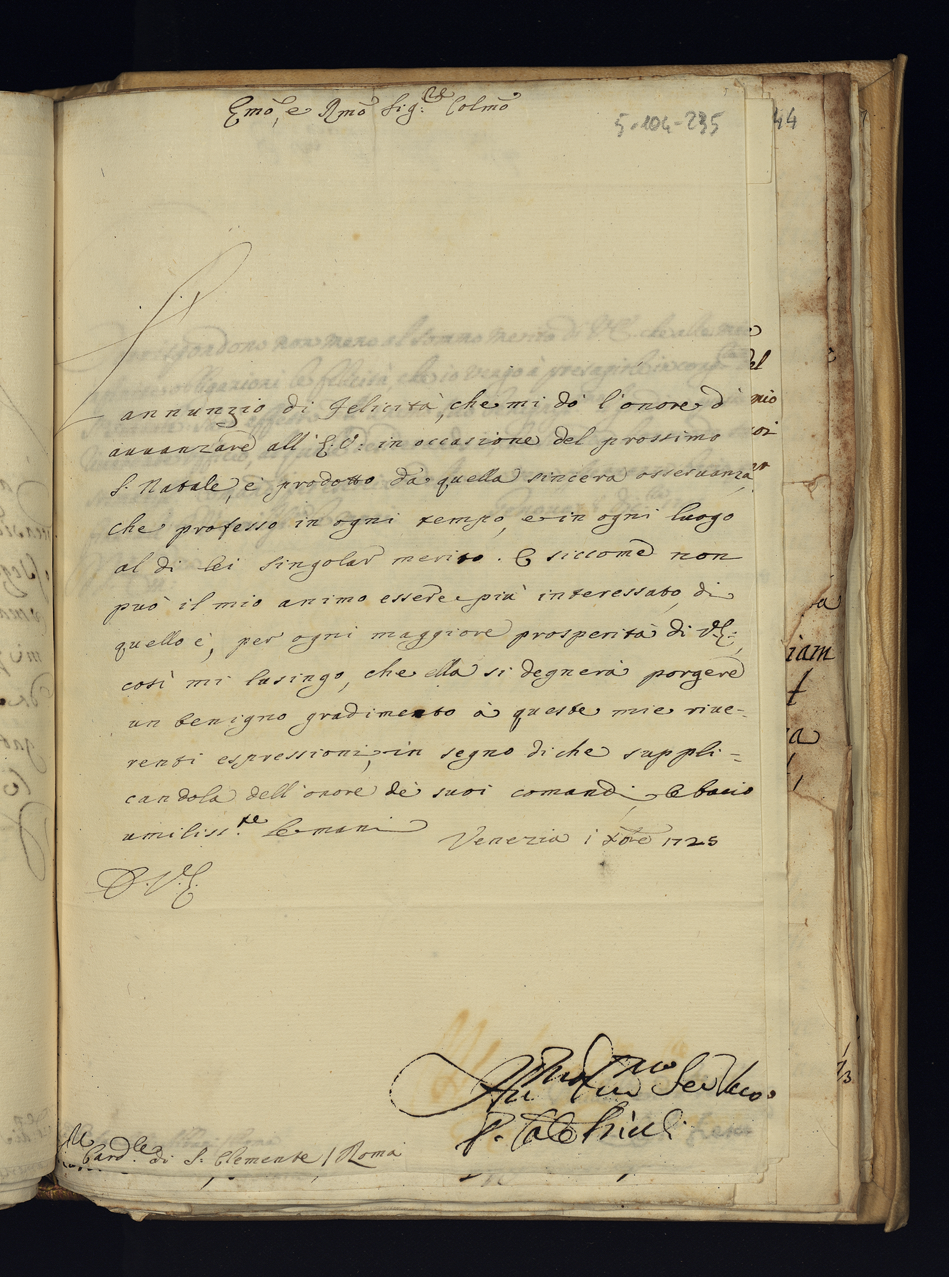 Emo, e Rmo Sig:re Colmo
5.104-235
44
L'
annunzio di felicità, che mi dò l'onore d'
avvanzare all'E: V: in occasione del prossimo
S. Natale, è prodotto da quella sincera osservanza,
che professo in ogni tempo, e in ogni luogo
al di lei singolar merito. E siccome non
può il mio animo essere più interessato, di
quello è, per ogni maggiore prosperità di V:E:,
così mi lusingo, che ella si degnerà porgere
un benigno gradimento à queste mie rive=
renti espressioni, in segno di che suppli=
candola dell'onore de suoi comandi, le bacio
umiliss.te le mani
Venezia i Xbre 1725
D. V. E.
Servre
Card.le di S. Clemente / Roma